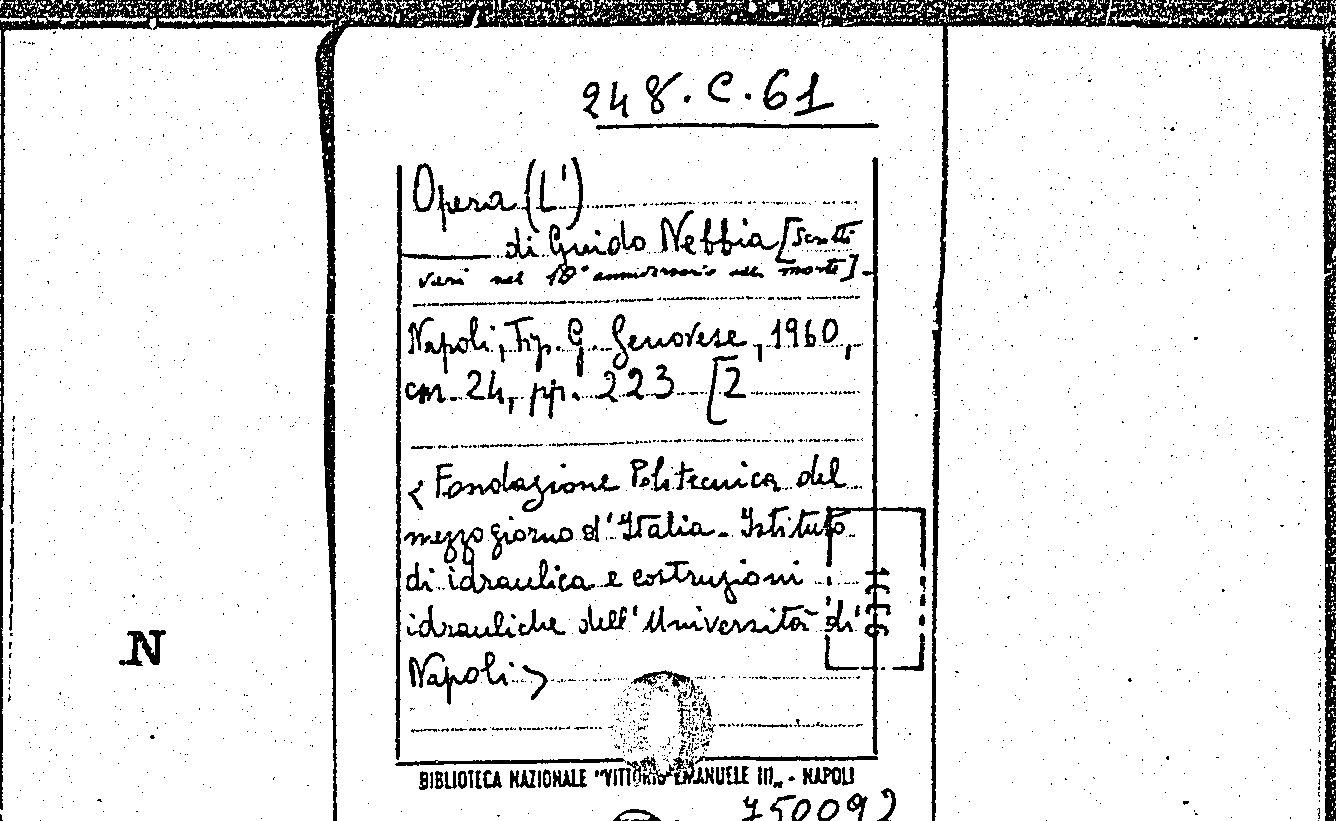 248.C.61
Opera (L')
di Guido Nebbia [Scritti
vari nel 10° anniversario della morte].
Napoli, Tip. G. Genovese, 1960,
cm. 24, pp. 223 [2
< Fondazione Politecnica del
mezzogiorno d'Italia. Istituto
di idraulica e costruzioni
idrauliche dell'Università di
Napoli >
N
BIBLIOTECA NAZIONALE "VITTORIO EMANUELE III„ - NAPOLI
750092